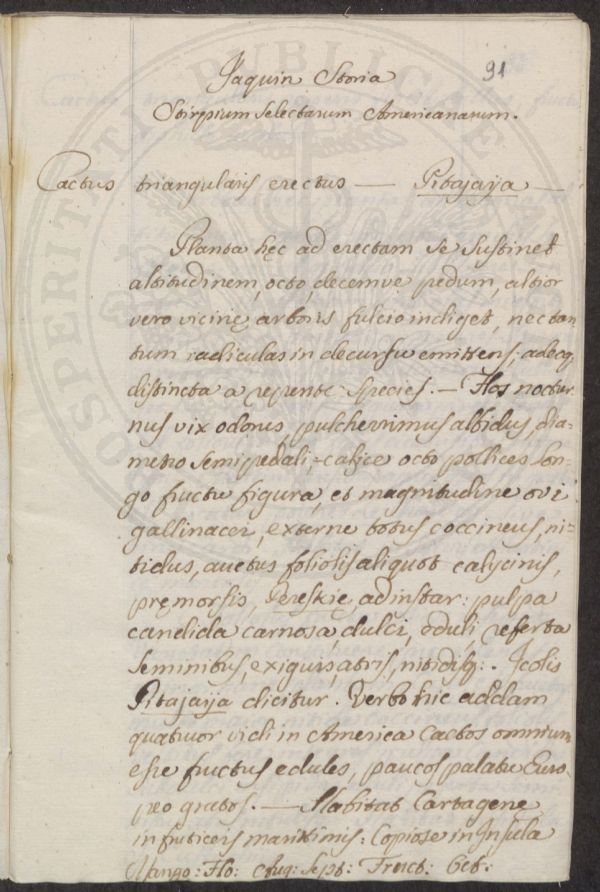 91
Jaquin Storia
Stirpium selectarum Americanarum.
Cactus triangularis erectus — Pitajaija —
Planta hęc ad erectam se sustinet
altitudinem, octo, decemve pedum, altior
vero vicinię arboris fulcro indiget, nec tan
tum radiculas in decursu emittens; adeoq.
distincta a repente species. — Flos noctur
nus vix odorus, pulcherrimus albidus, dia=
metro semipedali, calyce octo pollices lon=
go fructu figura, et magnitudine ovi
gallinacei, externe totus coccineus, ni=
tidus, auctus foliolis aliquot calycinis,
pręmorsis, Pereskię ad instar: pulpa
candida carnosa, dulci, eduli referta
seminibus, exiguis, atris, nitidisq:. Icolis
Pitajaija dicitur. Verbo hic addam
quatuor vidi in America Cactos omnium
esse fructus edules, paucos palatu Euro=
peo gratos. — Habitat Cartagene
in fruticeis maritimis: Copiose in Insula
Mango: Flo: Aug: Sept: Fruct: Oct:
PROSPERITATI PUBLICAE